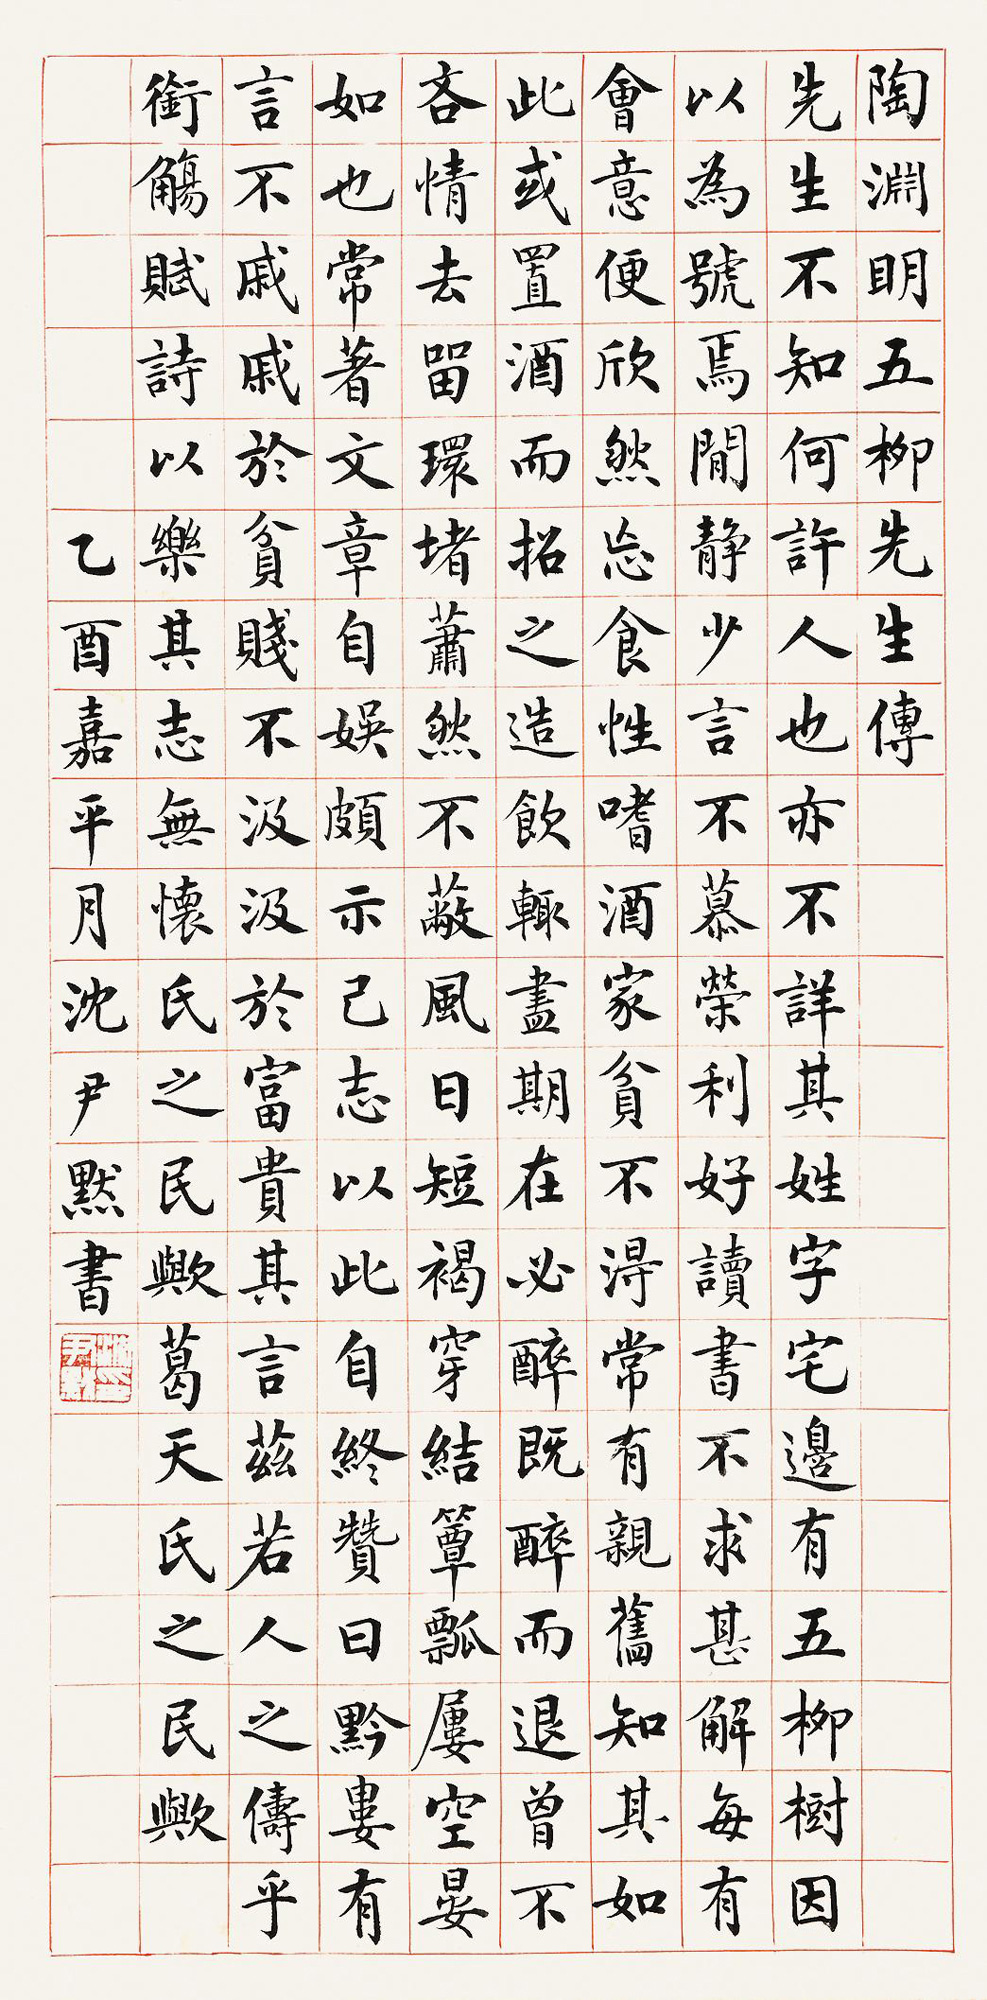 陶淵明五柳先生傳
先生不知何許人也亦不詳其姓字宅邊有五柳樹因
以為號焉閒靜少言不慕榮利好讀書不求甚解每有
會意便欣然忘食性嗜酒家貧不得常有親舊知其如
此或置酒而招之造飲輒盡期在必醉既醉而退曾不
吝情去留環堵蕭然不蔽風日短褐穿結簞瓢屢空晏
如也常著文章自娛頗示己志以此自終贊曰黔婁有
言不戚戚於貧賤不汲汲於富貴其言茲若人之儔乎
銜觴賦詩以樂其志無懷氏之民歟葛天氏之民歟
乙酉嘉平月沈尹默書
沈尹默